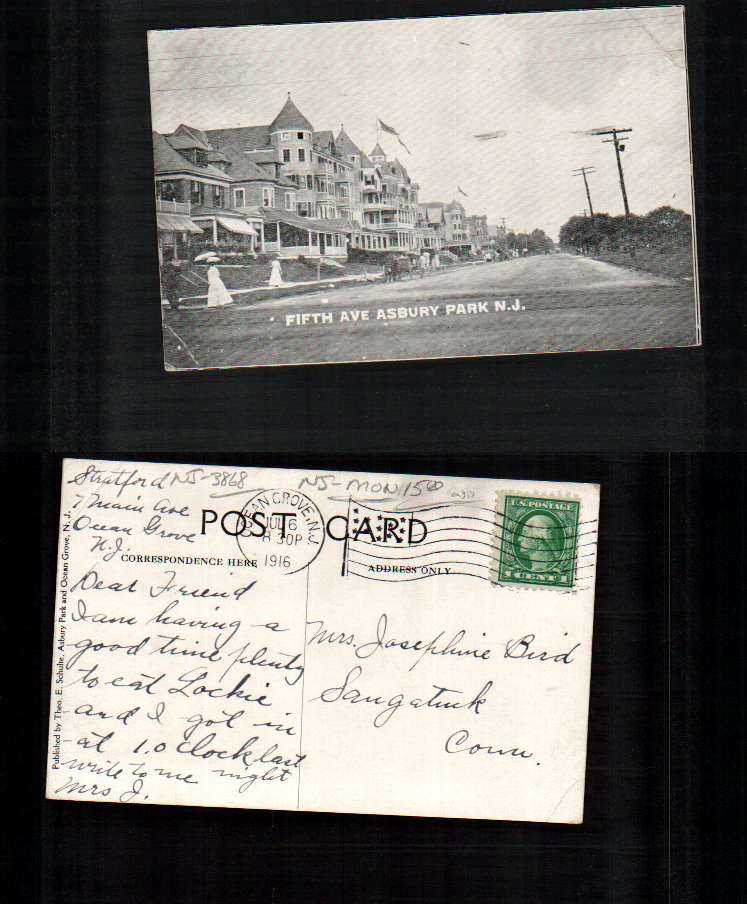 FIFTH AVE ASBURY PARK N.J.
Stratford NJ-3868 NJ-MON 1500
7 Main Ave
Ocean Grove
N.J.
POST CARD
OCEAN GROVE, N.J.
JUL 6
8 30P
1916
U.S. POSTAGE
1 CENT 1
CORRESPONDENCE HERE
ADDRESS ONLY
Published by Theo. E. Schulte, Asbury Park and Ocean Grove, N. J.
Dear Friend
I am having a
good time plenty
to eat Lockie
and I got in
at 1.0 clock last
write to me night
Mrs J.
Mrs Josephine Bird
Saugatuck
Conn.